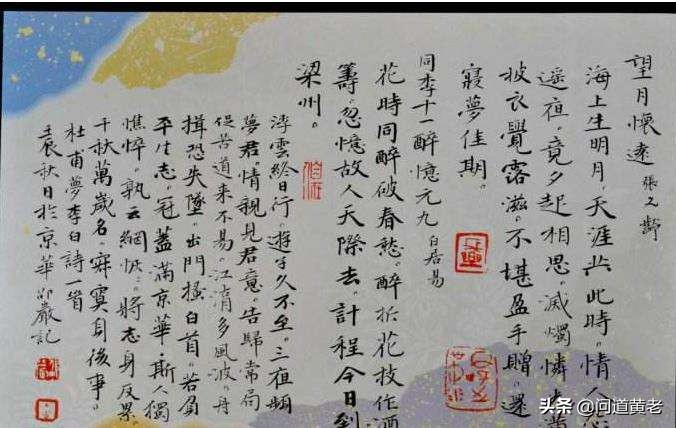 望月懷遠 張九齡
海上生明月。天涯共此時。情人怨
遥夜。竟夕起相思。滅燭憐光滿
披衣覺露滋。不堪盈手贈。還
寢夢佳期。
同李十一醉憶元九 白居易
花時同醉破春愁。醉折花枝作酒
籌。忽憶故人天際去。計程今日到
梁州。
浮雲終日行。遊子久不至。三夜頻
夢君。情親見君意。告歸常局
促苦道来不易。江湖多風波。舟
楫恐失墜。出門搔白首。若負
平生志。冠蓋滿京華。斯人獨
憔悴。孰云網恢々。將老身反累。
千秋萬歲名。寂寞身後事。
杜甫夢李白詩一首
壬辰秋日於京華 邵巖記
头条 @问道黄老